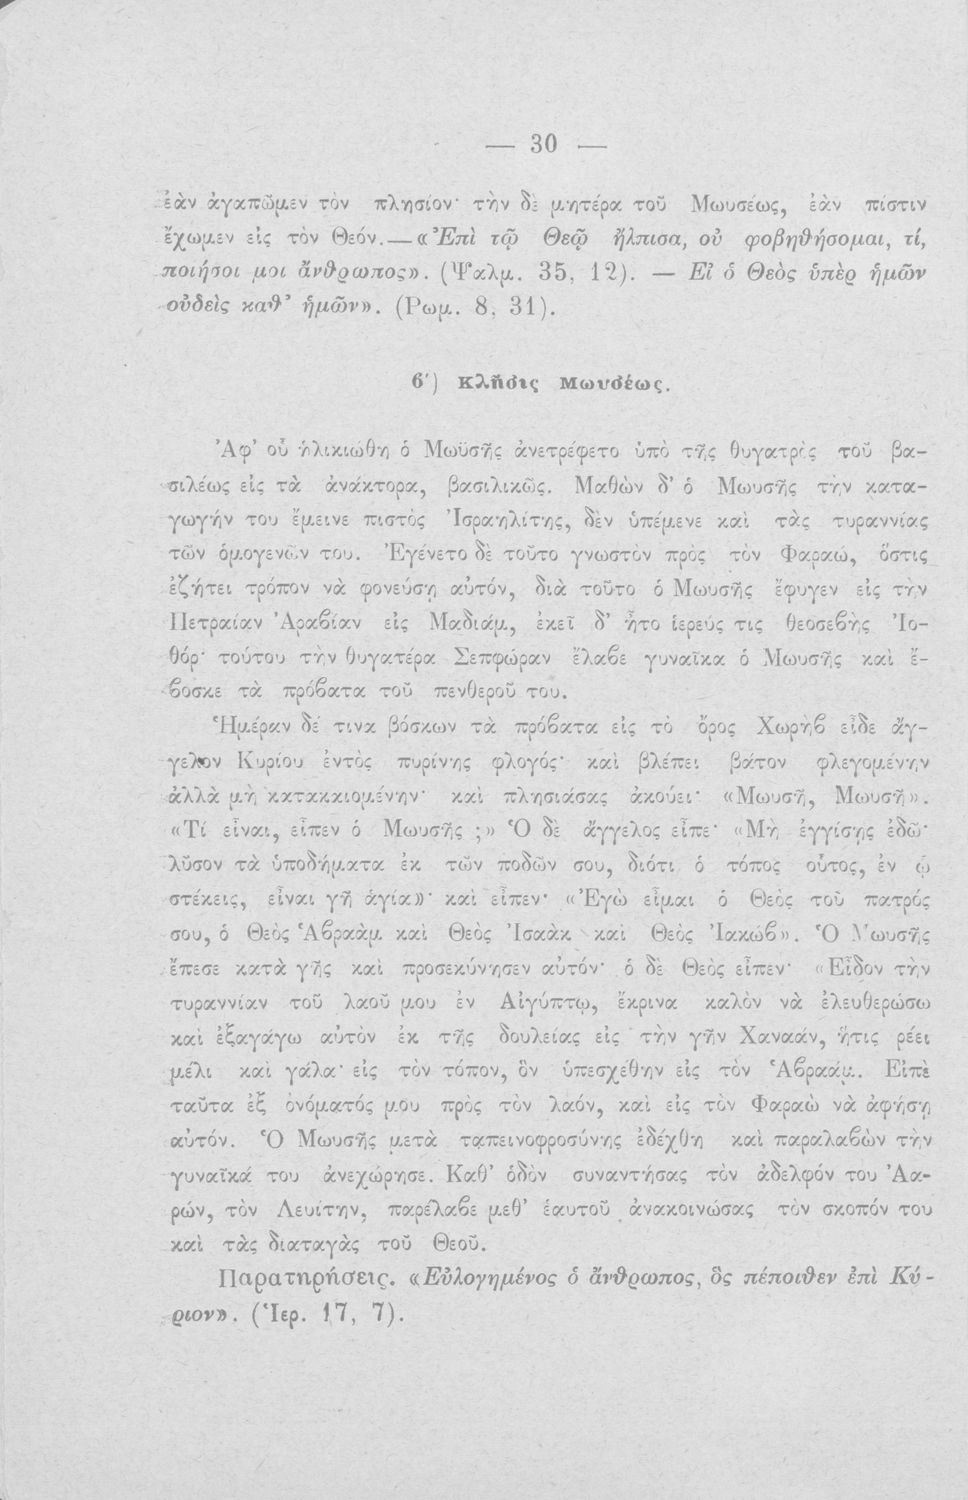 — 30 —
ἐὰν ἀγαπῶμεν τὸν πλησίον· τὴν δὲ μητέρα τοῦ Μωυσέως, ἐὰν πίστιν
ἔχωμεν εἰς τὸν Θεόν.— «Ἐπὶ τῷ Θεῷ ἤλπισα, οὐ φοβηθήσομαι, τί,
ποιήσοι μοι ἄνθρωπος». (Ψαλμ. 35, 12). — Εἰ ὁ Θεὸς ὑπὲρ ἡμῶν
οὐδεὶς καθ' ἡμῶν». (Ρωμ. 8, 31).
β') Κλῆσις Μωυσέως.
Ἀφ' οὗ ἡλικιώθη ὁ Μωϋσῆς ἀνετρέφετο ὑπὸ τῆς θυγατρὸς τοῦ βα-
σιλέως εἰς τὰ ἀνάκτορα, βασιλικῶς. Μαθὼν δ' ὁ Μωυσῆς τὴν κατα-
γωγήν του ἔμεινε πιστὸς Ἰσραηλίτης, δὲν ὑπέμενε καὶ τὰς τυραννίας
τῶν ὁμογενῶν του. Ἐγένετο δὲ τοῦτο γνωστὸν πρὸς τὸν Φαραώ, ὅστις
ἐζήτει τρόπον νὰ φονεύσῃ αὐτόν, διὰ τοῦτο ὁ Μωυσῆς ἔφυγεν εἰς τὴν
Πετραίαν Ἀραβίαν εἰς Μαδιάμ, ἐκεῖ δ' ἦτο ἱερεύς τις θεοσεβὴς Ἰο-
θόρ· τούτου τὴν θυγατέρα Σεπφώραν ἔλαβε γυναῖκα ὁ Μωυσῆς καὶ ἔ-
βοσκε τὰ πρόβατα τοῦ πενθεροῦ του.
Ἡμέραν δέ τινα βόσκων τὰ πρόβατα εἰς τὸ ὄρος Χωρὴβ εἶδε ἄγ-
γελον Κυρίου ἐντὸς πυρίνης φλογός· καὶ βλέπει βάτον φλεγομένην
ἀλλὰ μὴ κατακαιομένην· καὶ πλησιάσας ἀκούει· «Μωυσῆ, Μωυσῆ».
«Τί εἶναι, εἶπεν ὁ Μωυσῆς ;» Ὁ δὲ ἄγγελος εἶπε· «Μὴ ἐγγίσῃς ἐδῶ·
λῦσον τὰ ὑποδήματα ἐκ τῶν ποδῶν σου, διότι ὁ τόπος οὗτος, ἐν ᾧ
στέκεις, εἶναι γῆ ἁγία»· καὶ εἶπεν· «Ἐγὼ εἶμαι ὁ Θεὸς τοῦ πατρός
σου, ὁ Θεὸς Ἀβραὰμ καὶ Θεὸς Ἰσαὰκ καὶ Θεὸς Ἰακώβ». Ὁ Μωυσῆς
ἔπεσε κατὰ γῆς καὶ προσεκύνησεν αὐτόν· ὁ δὲ Θεὸς εἶπεν· «Εἶδον τὴν
τυραννίαν τοῦ λαοῦ μου ἐν Αἰγύπτῳ, ἔκρινα καλὸν νὰ ἐλευθερώσω
καὶ ἐξαγάγω αὐτὸν ἐκ τῆς δουλείας εἰς τὴν γῆν Χαναάν, ἥτις ῥέει
μέλι καὶ γάλα· εἰς τὸν τόπον, ὃν ὑπεσχέθην εἰς τὸν Ἀβραάμ. Εἰπὲ
ταῦτα ἐξ ὀνόματός μου πρὸς τὸν λαόν, καὶ εἰς τὸν Φαραὼ νὰ ἀφήσῃ
αὐτόν. Ὁ Μωυσῆς μετὰ ταπεινοφροσύνης ἐδέχθη καὶ παραλαβὼν τὴν
γυναῖκά του ἀνεχώρησε. Καθ' ὁδὸν συναντήσας τὸν ἀδελφόν του Ἀα-
ρών, τὸν Λευίτην, παρέλαβε μεθ' ἑαυτοῦ ἀνακοινώσας τὸν σκοπόν του
καὶ τὰς διαταγὰς τοῦ Θεοῦ.
Παρατηρήσεις. «Εὐλογημένος ὁ ἄνθρωπος, ὃς πέποιθεν ἐπὶ Κύ-
ριον». (Ἱερ. 17, 7).